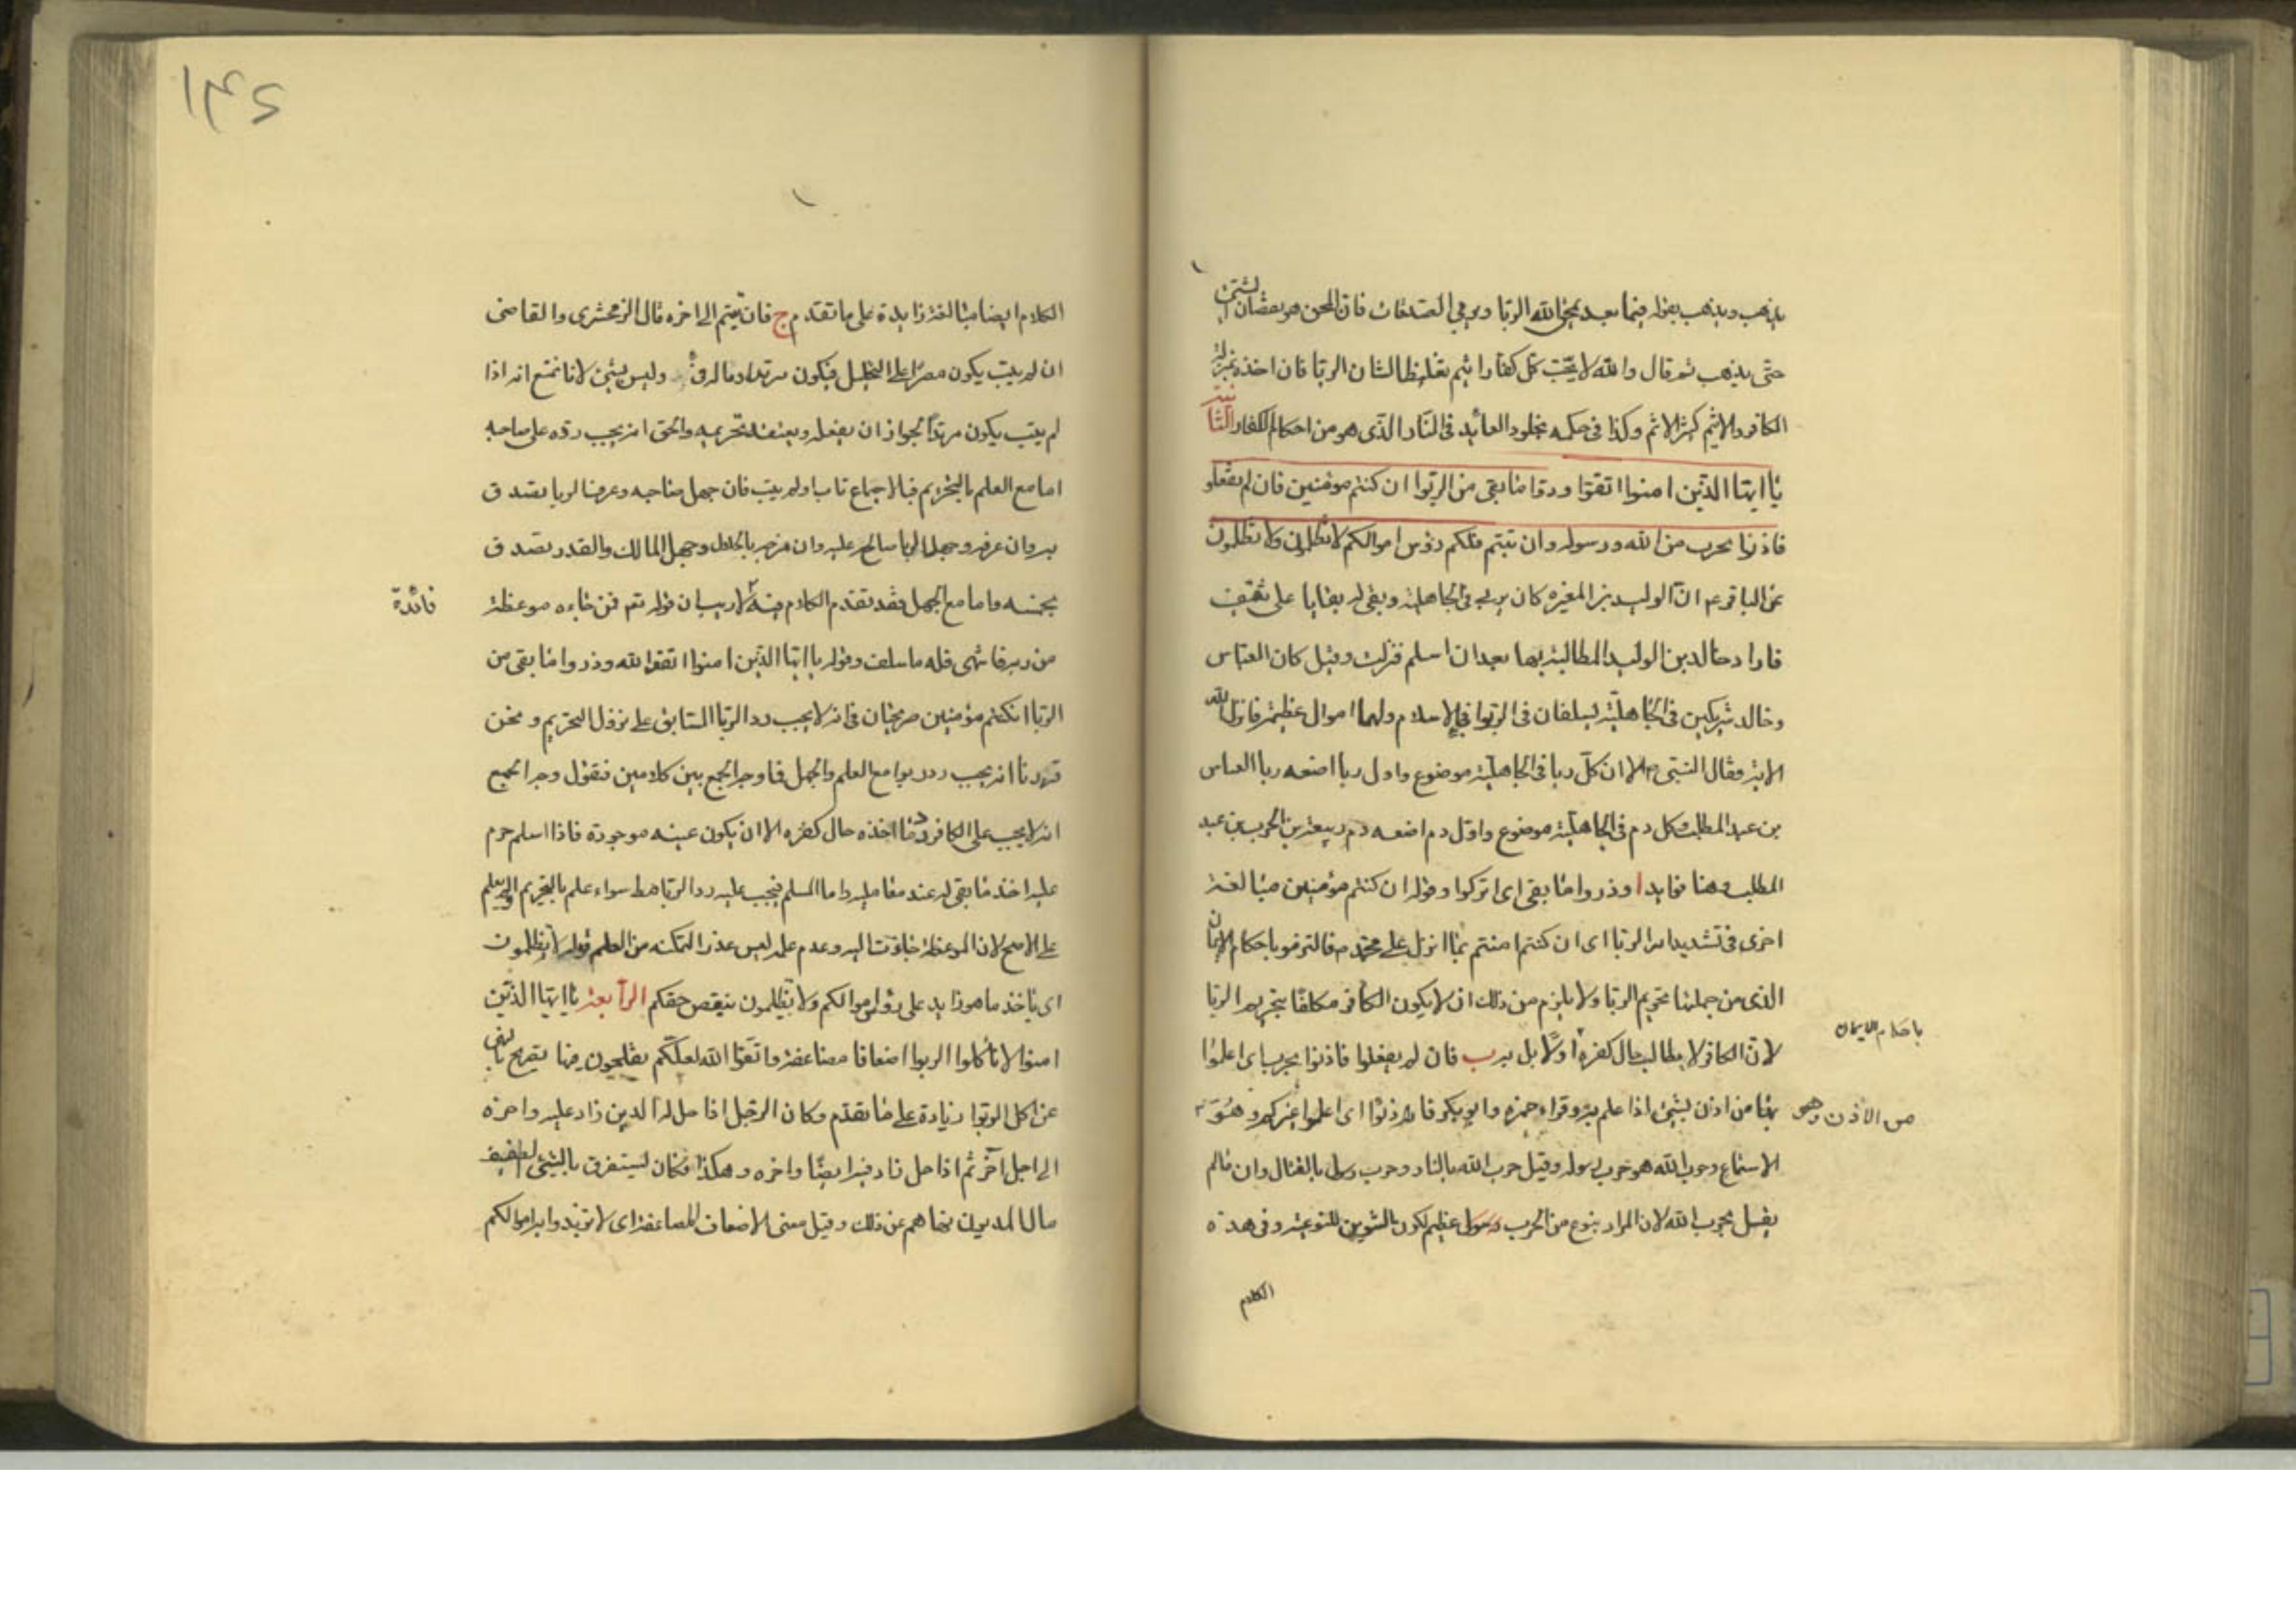 يذهب ويذهب بقوله فيما بعد يمحق الله الربا ويربي الصدقات فان المحق هو نقصان الشيئ
حتى يذهب ثم قال والله لا يحب كل كفار اثيم تغليظا لشان الربا فان اخذه بمنزلة
الكافر والاثيم كثير الاثم وكذا في حكمه بخلود العائد في النار الذي هو من احكام الكفار الثالثة
يا ايها الذين امنوا اتقوا وذروا ما بقى من الربوا ان كنتم مومنين فان لم تفعلوا
فاذنوا بحرب من الله ورسوله وان تبتم فلكم رؤس اموالكم لا تظلمون ولا تظلمون
عن الباقر ع ان الوليد بن المغيرة كان يربى في الجاهلية وبقى له بقايا على ثقيف
فاراد خالد بن الوليد المطالبة بها بعد ان اسلم فنزلت وقيل كان العباس
وخالد شريكين في الجاهلية يسلفان في الربوا فجاء الاسلام ولهما اموال عظيمة فانزل الله
الاية وقال النبي ص الا ان كل ربا في الجاهلية موضوع واول ربا اضعه ربا العباس
بن عبد المطلب وكل دم في الجاهلية موضوع واول دم اضعه دم ربيعة بن الحرب بن عبد
المطلب وهنا فوايد ا وذروا ما بقى اى اتركوا وقوله ان كنتم مؤمنين مبالغة
اخرى في تشديد امر الربا اى ان كنتم امنتم بما انزل على محمد ص فالتزموا باحكام الايمان
الذى من جملتها تحريم الربا ولا يلزم من ذلك ان لا يكون الكافر مكلفا بتحريم الربا
باحكام الايمان
لان الكافر لا يطالب حال كفره اولا بل به ب فان لم تفعلوا فاذنوا بحرب اى اعلموا
بها من اذن بشيئ اذا علم به وقراء حمزه وابو بكر فاذنوا اى اعلموا غيركم وهو
من الاذن وهو
الاستماع وحرب الله هو حرب رسوله وقيل حرب الله بالنار وحرب رسوله بالقتال وانما لم
يقل بحرب الله لان المراد بنوع من الحرب عظيم لكون التنوين للنوعية وفي هذه
الكلام
١٣٤
الكلام ايضا مبالغة زايدة على ما تقدم ج فان تبتم الى اخره قال الزمخشرى والقاضى
ان لم يتب يكون مصرا على التحليل فيكون مرتدا وماله فئ وليس بشيئ لانا نمنع انه اذا
لم يتب يكون مرتدا لجواز ان يفعله ويعتقد تحريمه والحق انه يجب رده على صاحبه
اما مع العلم بالتحريم فبالاجماع تاب او لم يتب فان جهل صاحبه وعرف الربا تصدق
به وان عرفه وجهل الربا صالح عليه وان مزجه بالحلال وجهل المالك والقدر تصدق
بخمسه واما مع الجهل فقد تقدم الكلام فيه لا ريب ان قوله تعم فمن جاءه موعظة
فائدة
من ربه فانتهى فله ما سلف وقوله يا ايها الذين امنوا اتقوا الله وذروا ما بقى من
الربا ان كنتم مؤمنين صريحان في انه لا يجب رد الربا السابق على نزول التحريم ونحن
قررنا انه يجب رد الربوا مع العلم والجهل فما وجه الجمع بين كلامين فنقول وجه الجمع
انه لا يجب على الكافر رد ما اخذه حال كفره الا ان يكون عينه موجودة فاذا اسلم حرم
عليه اخذ ما بقى له عند معامليه واما المسلم فيجب عليه رد الربا سواء علم بالتحريم او لم يعلم
على الاصح لان الموعظة جاءت اليه وعدم علمه ليس عذرا لتمكنه من العلم قوله لا تظلمون
اى باخذ ما هو زايد على رؤس اموالكم ولا تظلمون بنقص حقكم الرابعة يا ايها الذين
امنوا لا تأكلوا الربوا اضعافا مضاعفة واتقوا الله لعلكم تفلحون هنا تصريح بالنهى
عن اكل الربوا زيادة على ما تقدم وكان الرجل اذا حل له الدين زاد عليه واخره
الى اجل آخر ثم اذا حل زاد فيه ايضا واخره وهكذا فكان يستغرق بالشيئ الطفيف
مال المديون فنهاهم عن ذلك وقيل معنى الاضعاف المضاعفة اى لا تزيدوا به اموالكم